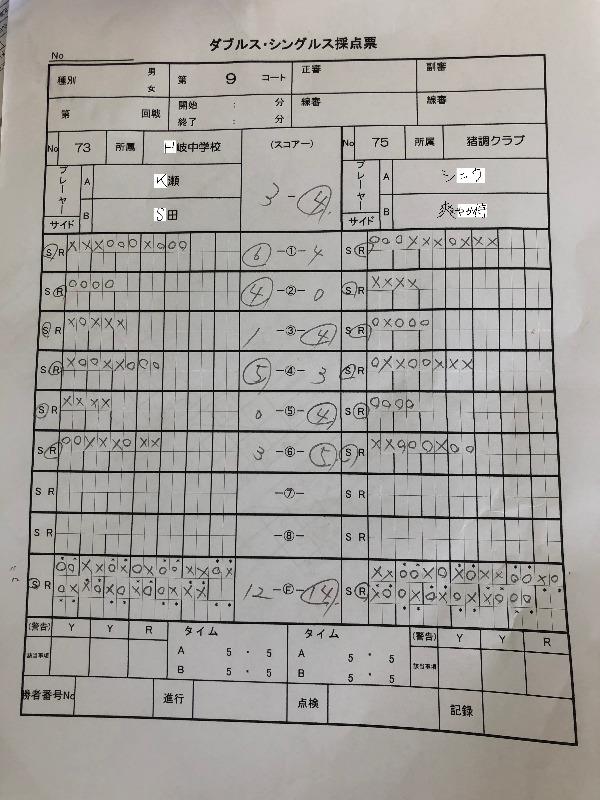 ダブルス・シングルス採点票
No
種別 男 女 第 9 コート 正審 副審
第 回戦 開始 : 分 終了 : 分 線審 線審
No 73 所属 岐中学校 (スコアー) No 75 所属 猪調クラブ
プレーヤー A 瀬 3-④ プレーヤー A
B 田 B
サイド サイド
S R XXXOOOXOOO ⑥-①-4 S R OOOXXXOXXX
S R OOOO ④-②-0 S R XXXX
S R XOXXX 1-③-④ S R OXOOO
S R XOOXXOOO ⑤-④-3 S R OXXOOXXX
S R XXXX 0-⑤-④ S R OOOO
S R OOXXXOXX 3-⑥-⑤ S R XXOOOXOO
S R -⑦- S R
S R -⑧- S R
S R 12-Ⓕ-⑭ S R
(警告) Y Y R タイム タイム (警告) Y Y R
該当事項 A 5・5 A 5・5 該当事項
B 5 5 B 5 5
勝者番号No 進行 点検 記録